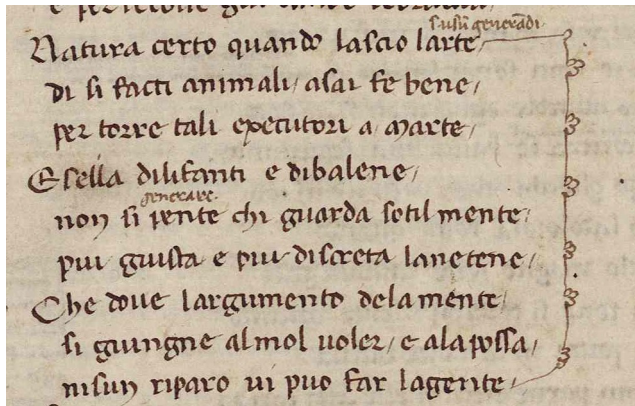 s. usū generādi
Natura certo quando lascio larte
di si facti animali / asai fe bene /
per torre tali executori a / Marte /
E sella dilifanti e dibalene /
generare.
non si pente chi guarda sotil mente /
piu giusta e piu discreta lanetene /
Che doue largumento dela mente /
si giungne al mol uoler / e ala possa /
nisun riparo ui puo far lagente